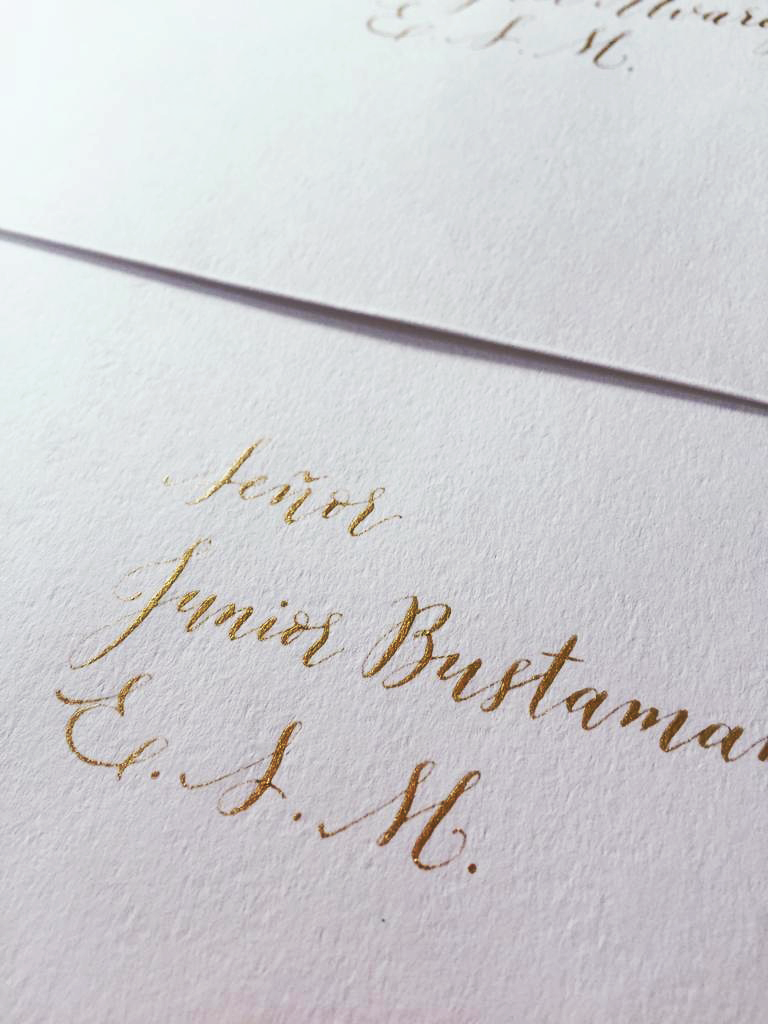 E. S. M.
Señor
Junior Bustaman
E. S. M.